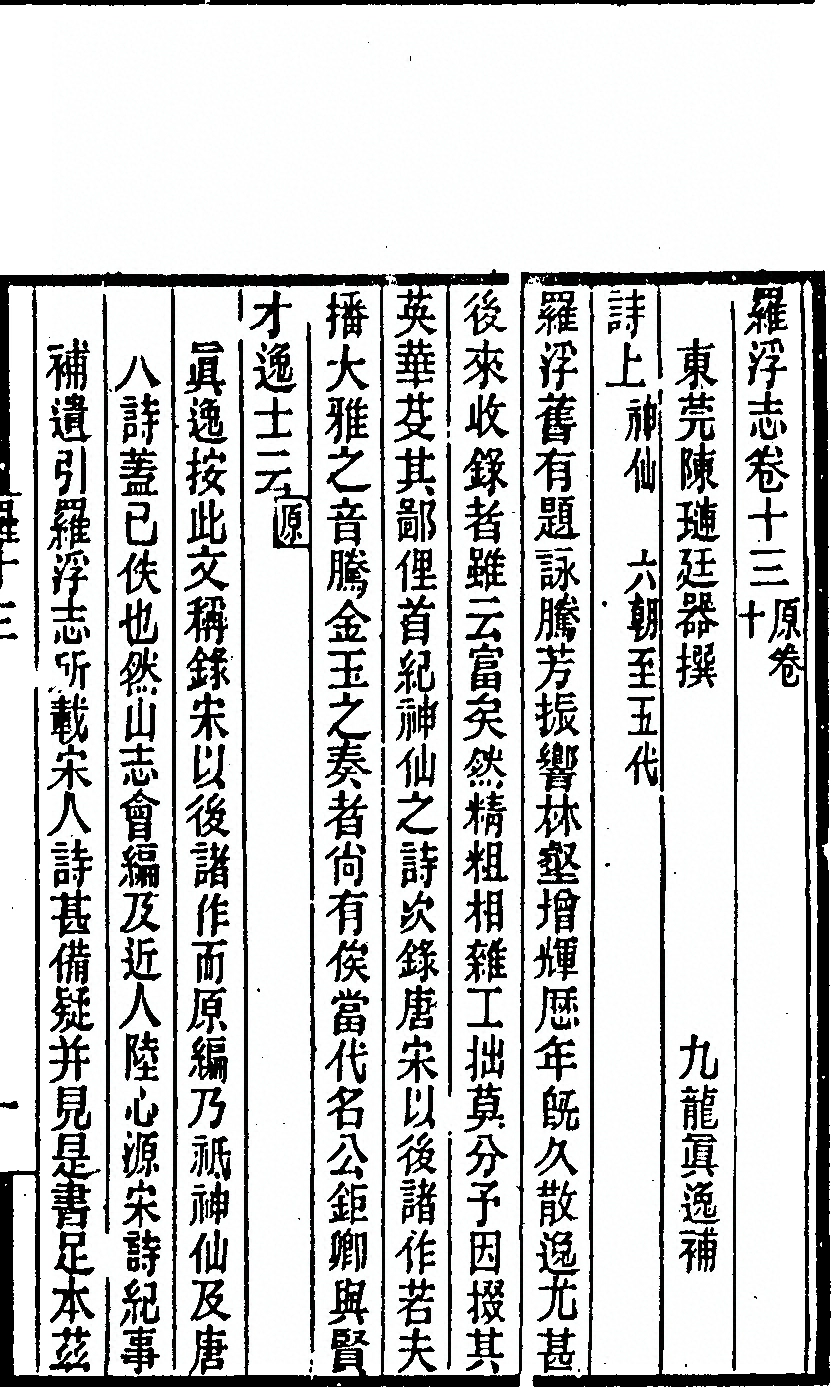 羅浮志卷十三原卷十
東莞陳璉廷器撰　九龍眞逸補
詩上　神仙　六朝至五代
羅浮舊有題詠騰芳振響林壑增輝厯年旣久散逸尤甚
後來收錄者雖云富矣然精粗相雜工拙莫分予因掇其
英華芟其鄙俚首紀神仙之詩次錄唐宋以後諸作若夫
播大雅之音騰金玉之奏者尙有俟當代名公鉅卿與賢
才逸士云原
眞逸按此文稱錄宋以後諸作而原編乃祇神仙及唐
八詩蓋已佚也然山志會編及近人陸心源宋詩紀事
補遺引羅浮志所載宋人詩甚備疑并見是書足本茲
羅十三
一